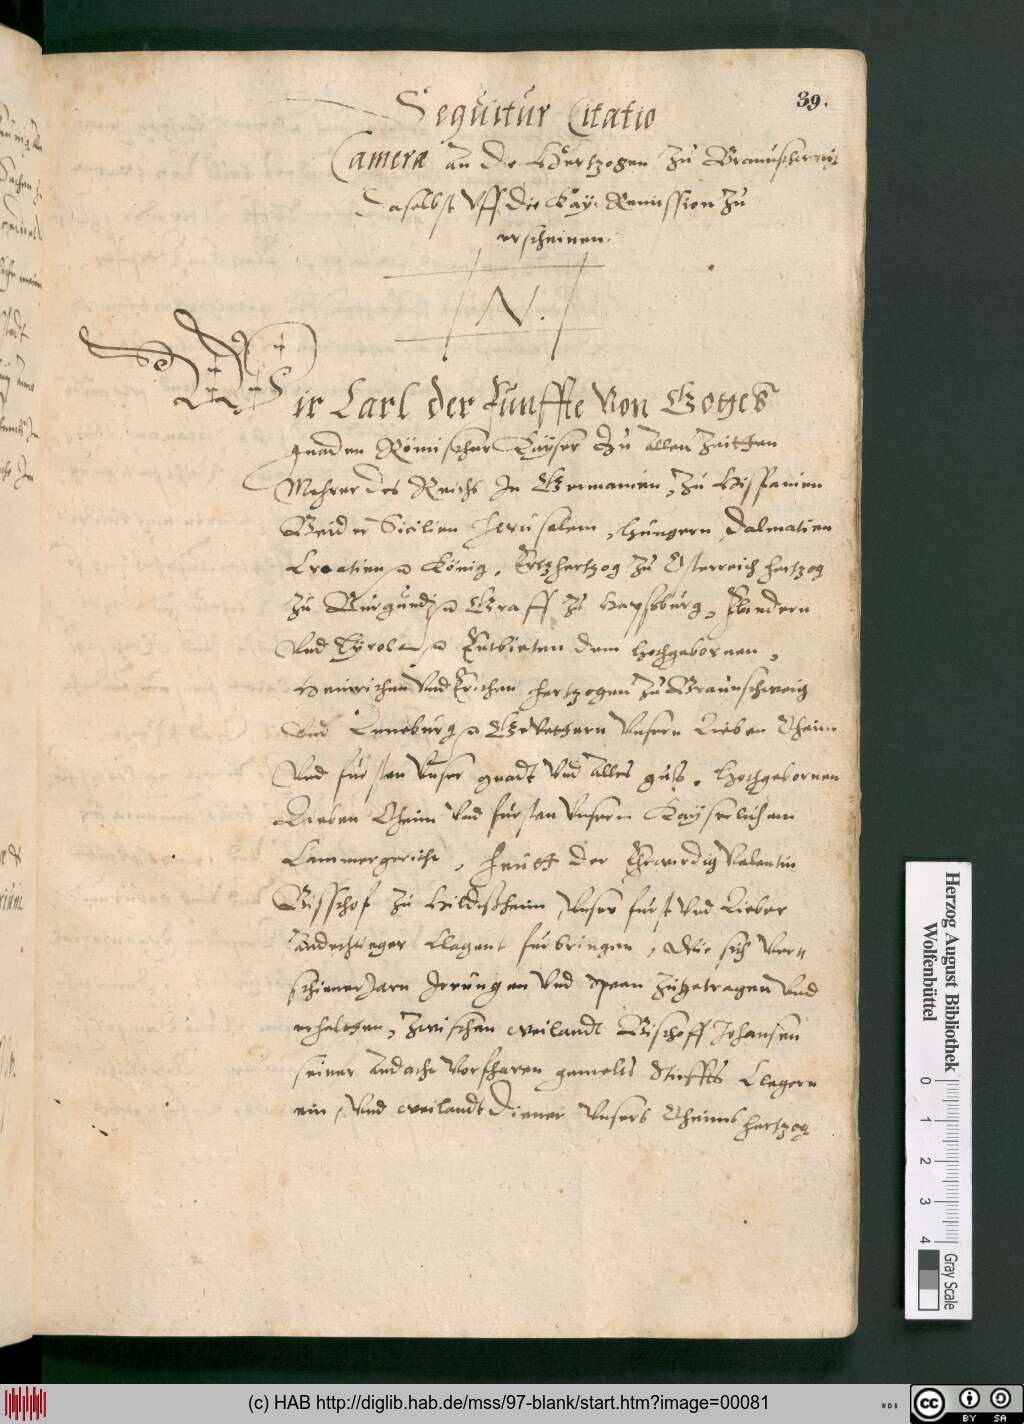 39.
Sequitur Citatio
Camera an die Hertzogen zu Braunschweig
Daselbst vff die Kay: Remission zu
erscheinen.
N.
Wir Carl der funffte Von Gottes
gnaden Römischer Kayser zu allen Zeitten
Mehrer des Reichs In Germanien, zu Hispanien
Beider Sicilien Jerusalem, Hungern Dalmatien
Croatien König, Ertzhertzog zu Osterreich hertzog
zu Burgundj Graff zu Hapsburg, Flandern
Vnd Tyrol Entbieten dem Hochgebornen,
Heinrichen Vnd Erichen hertzogen zu Braunschweig
Vnd Luneburg Gevettern Vnsern Lieben Oheim
Vnd fursten Vnser gnadt Vnd alles guts, Hochgebornen
Lieben Oheim Vnd fursten Vnserm Kayserlichem
Cammergericht, hautt der Ehrwirdig Valentin
Bisschof zu Hildeßheim Vnser furst Vnd Lieber
andechtiger Clagent furbringen, Wie sich Vern
schiener Jarn Irrungen Vnd Span zugetragen Vnd
erhaltten, zwischen weilandt Bischoff Johansen
seiner Andacht Vorfharen gemelts Stiffts Clegern
ein, Vnd weilandt Diener Vnsers Oheims hertzog
Herzog August Bibliothek
Wolfenbüttel
0 1 2 3 4
Gray Scale
(c) HAB http://diglib.hab.de/mss/97-blank/start.htm?image=00081
cc BY SA